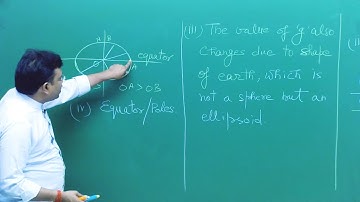 N B
equator
O A
S OA > OB
(iv) Equator/Poles.
(iii) The value of 'g' also
changes due to shape
of earth, which is
not a sphere but an
ellipsoid.
(ii